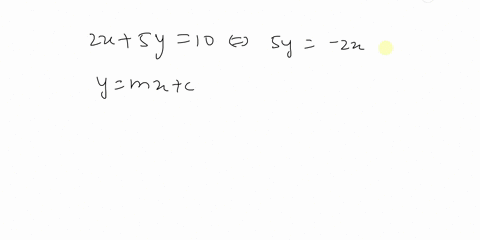 2x + 5y = 10 ⇔ 5y = -2x
y = mx + c